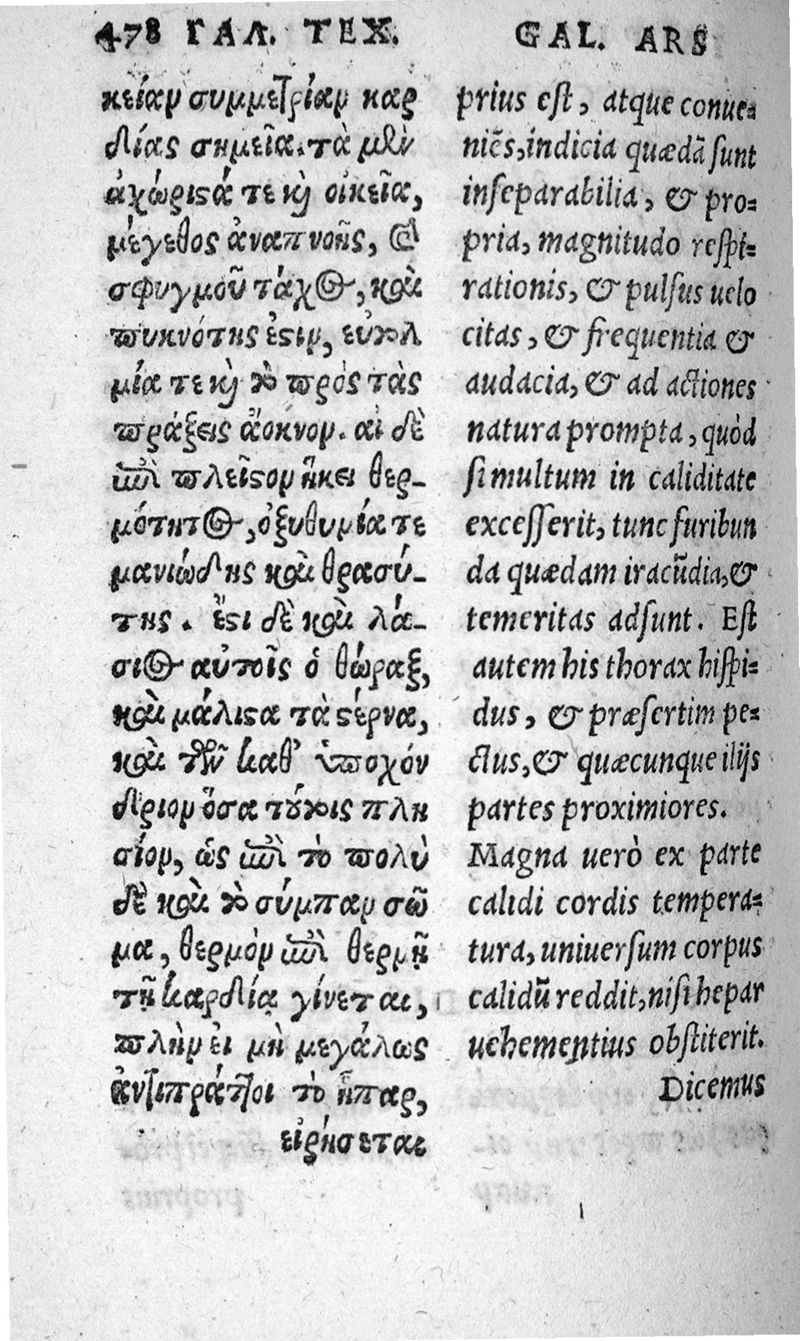 478 ΓΑΛ. ΤΕΧ.
κείαν συμμετρίαν καρ
δίας σημεῖα. τὰ μὲν
ἀχώριϛά τε κὶ οἰκεῖα,
μέγεθος ἀναπνοῆς, καὶ
σφυγμοῦ τάχος, καὶ
πυκνότης ἐϛιν, εὐτολ
μία τε κὶ τὸ πρὸς τὰς
πράξεις ἄοκνον. αἱ δὲ
ἐπὶ πλεῖϛον ἥκει θερ-
μότητος, ὀξυθυμία τε
μανιώδης καὶ θρασύ-
της. ἔϛι δὲ καὶ λά-
σιος αὐτοῖς ὁ θώραξ,
καὶ μάλιϛα τὰ ϛέρνα,
καὶ τῶν καθ' ὑποχόν
δριον ὅσα τούτοις πλη
σίον, ὡς ἐπὶ τὸ πολὺ
δὲ καὶ τὸ σύμπαν σῶ
μα, θερμὸν ἐπὶ θερμῇ
τῇ καρδίᾳ γίνεται,
πλὴν εἰ μὴ μεγάλως
ἀντιπράττοι τὸ ἧπαρ,
εἰρήσεται
GAL. ARS
prius est, atque conue=
niēs, indicia quædā sunt
inseparabilia, & pro=
pria, magnitudo respi=
rationis, & pulsus uelo
citas, & frequentia &
audacia, & ad actiones
natura prompta, quòd
si multum in caliditate
excesserit, tunc furibun
da quædam iracūdia, &
temeritas adsunt. Est
autem his thorax hispi=
dus, & præsertim pe=
ctus, & quæcunque ilijs
partes proximiores.
Magna uerò ex parte
calidi cordis tempera=
tura, uniuersum corpus
calidū reddit, nisi hepar
uehementius obstiterit.
Dicemus